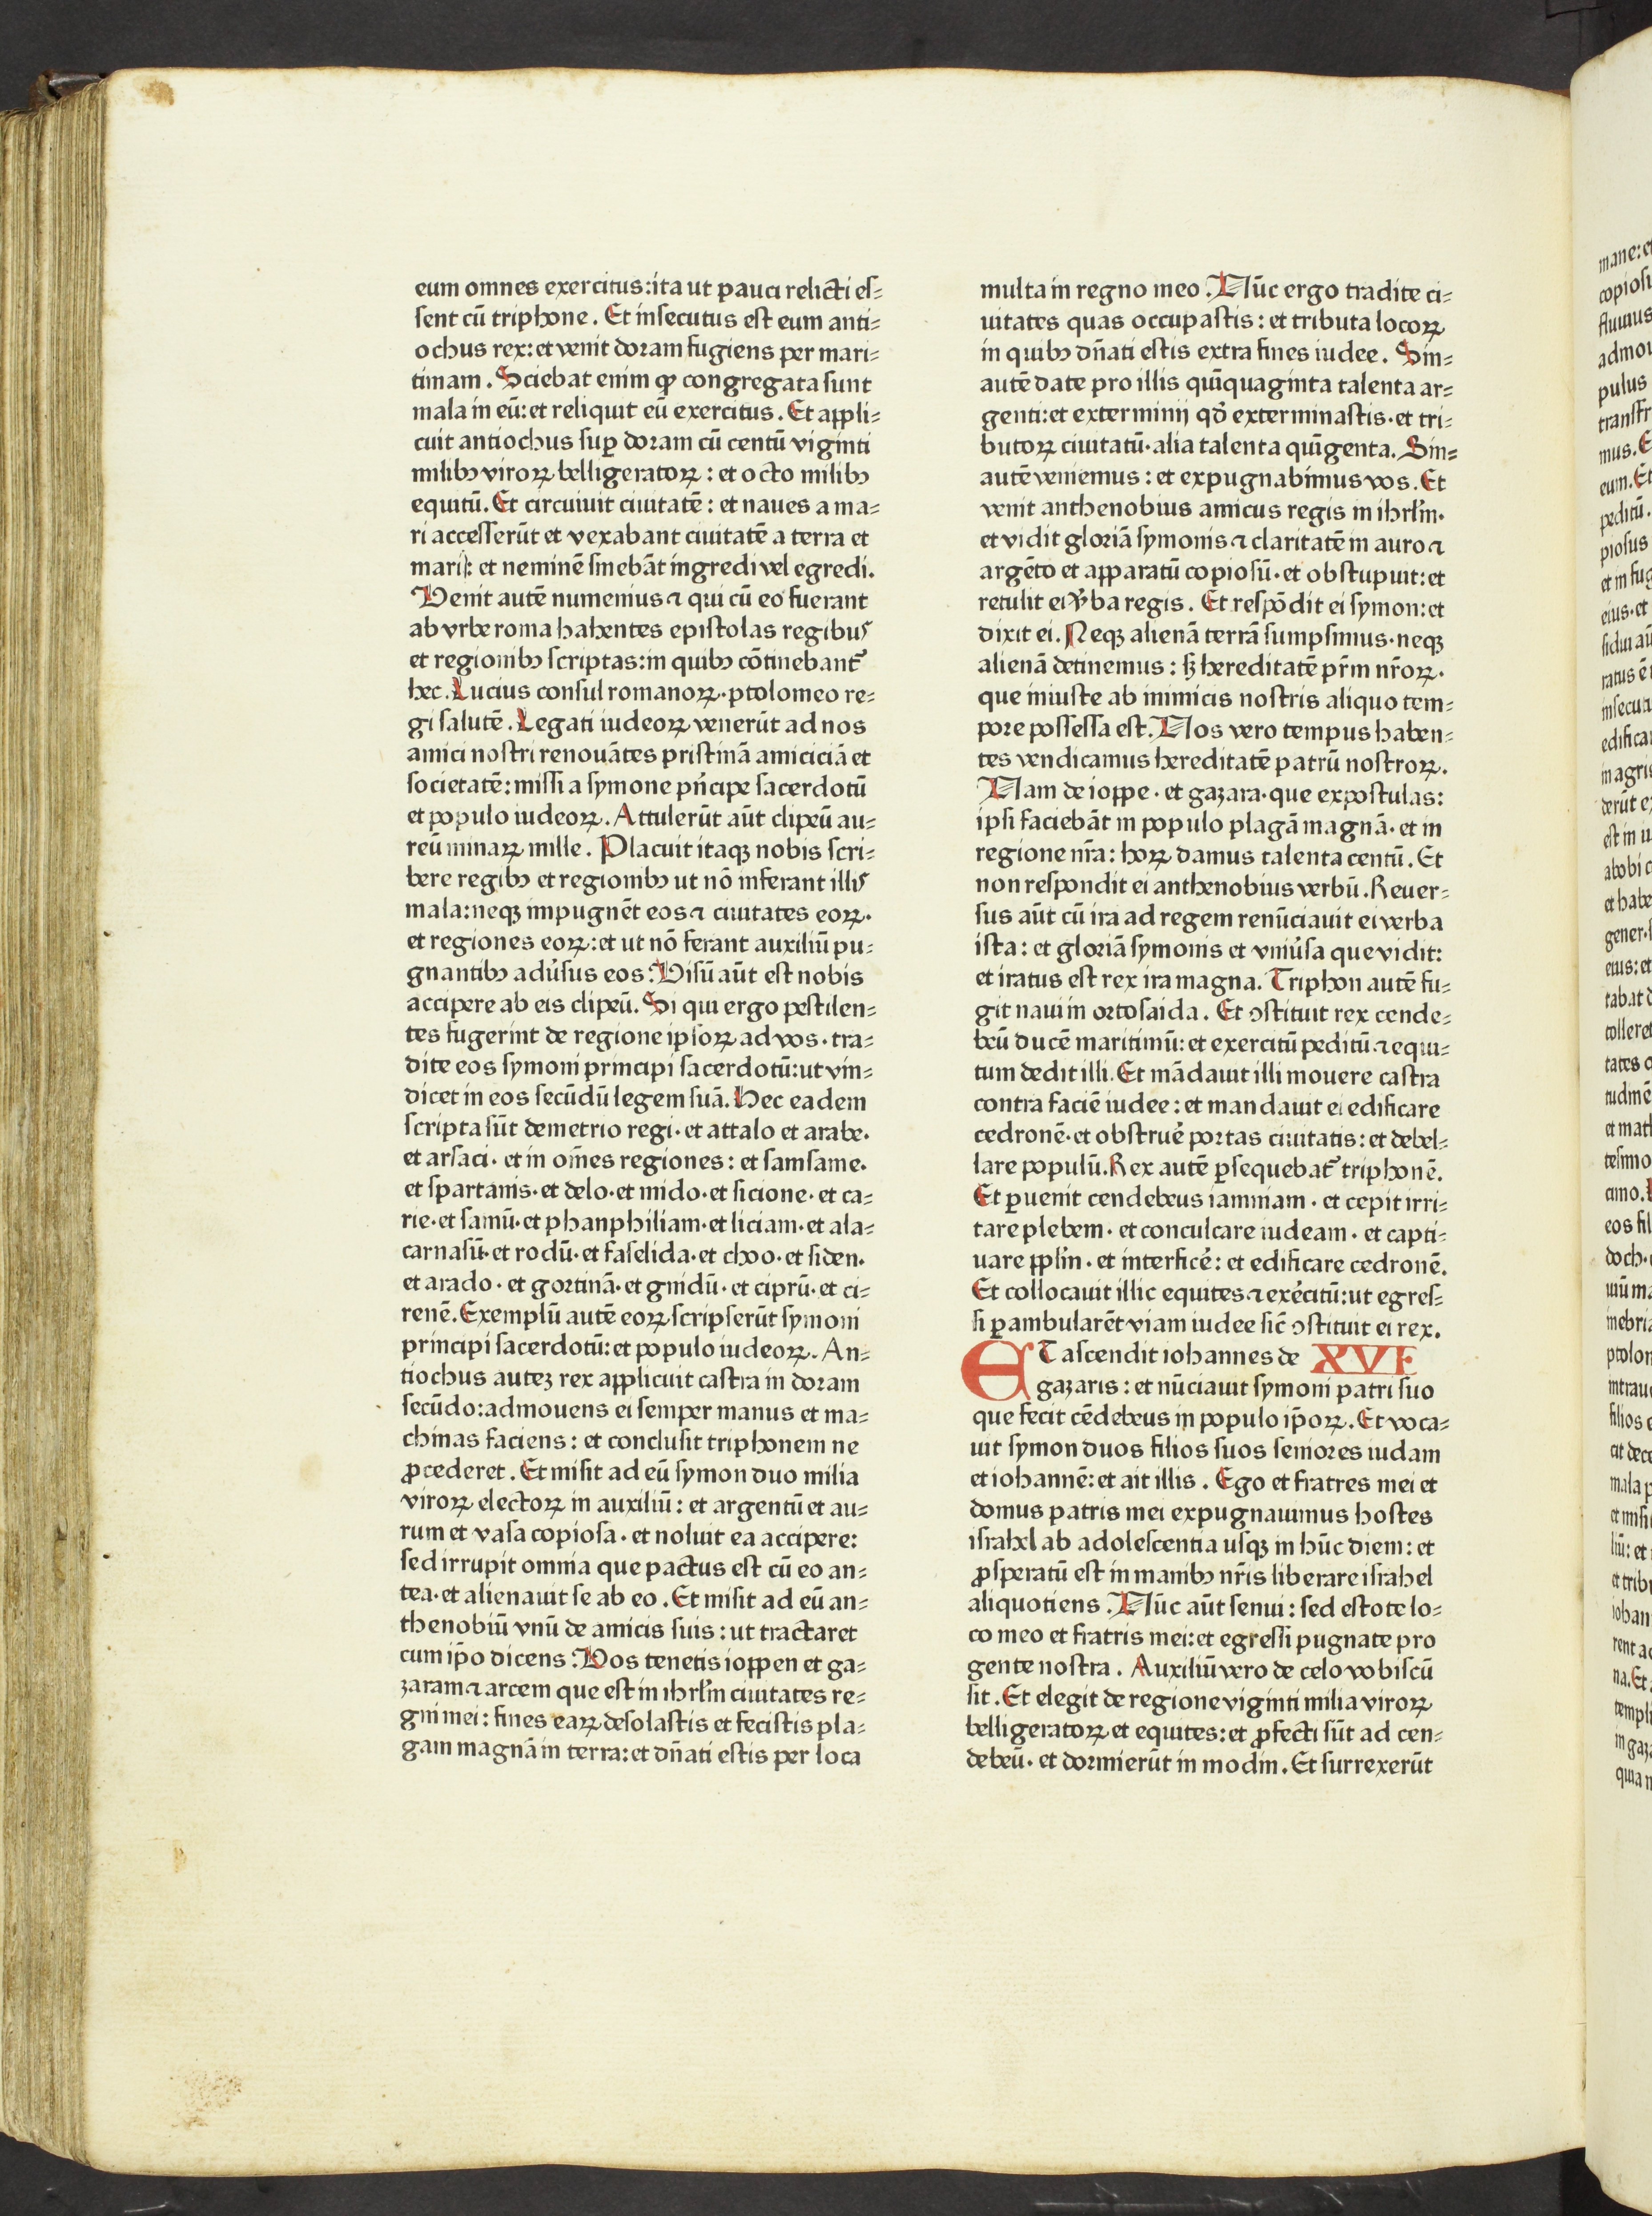 eum omnes exercitus:ita ut pauci relicti eſ⸗
ſent cū triphone. Et inſecutus eſt eum anti⸗
ochus rex:et venit doram fugiens per mari⸗
timam. Sciebat enim ꝙ congregata ſunt
mala in eū:et reliquit eū exercitus. Et appli⸗
cuit antiochus ſuꝑ doram cū centū viginti
milibꝫ viroꝝ belligeratoꝝ: et octo milibꝫ
equitū. Et circuiuit ciuitatē: et naues a ma⸗
ri acceſſerūt et vexabant ciuitatē a terra et
mari: et neminē ſinebāt ingredi vel egredi.
Venit autē numenius ⁊ qui cū eo fuerant
ab vrbe roma habentes epiſtolas regibus
et regionibꝫ ſcriptas:in quibꝫ cōtinebant᷑
hec. Lucius conſul romanoꝝ· ptolomeo re⸗
gi ſalutē. Legati iudeoꝝ venerūt ad nos
amici noſtri renouātes priſtinā amiciciā et
ſocietatē: miſſi a ſymone pn̄cipe ſacerdotū
et populo iudeoꝝ. Attulerūt aūt clipeū au⸗
reū minaꝝ mille. Placuit itaqꝫ nobis ſcri⸗
bere regibꝫ et regionibꝫ ut nō inferant illis
mala:neqꝫ impugnēt eos ⁊ ciuitates eoꝝ·
et regiones eoꝝ:et ut nō ferant auxiliū pu⸗
gnantibꝫ adu̓ſus eos: Viſū aūt eſt nobis
accipere ab eis clipeū. Si qui ergo peſtilen⸗
tes fugerint de regione ipſoꝝ ad vos· tra⸗
dite eos ſymoni principi ſacerdotū:ut vin⸗
dicet in eos ſecūdū legem ſuā. Hec eadem
ſcripta ſūt demetrio regi· et attalo et arabe·
et arſaci· et in om̄es regiones: et ſamſame·
et ſpartanis· et delo· et mido· et ſicione· et ca⸗
rie· et ſamū· et phanphiliam· et liciam· et ala⸗
carnaſū· et rodū· et faſelida· et choo· et ſiden·
et arado· et gortinā· et gnidū· et ciprū· et ci⸗
renē. Exemplū autē eoꝝ ſcripſerūt ſymoni
principi ſacerdotū: et populo iudeoꝝ. An⸗
tiochus autez rex applicuit caſtra in doram
ſecūdo:admouens ei ſemper manus et ma⸗
chinas faciens: et concluſit triphonem ne
ꝓcederet. Et miſit ad eū ſymon duo milia
viroꝝ electoꝝ in auxiliū: et argentū et au⸗
rum et vaſa copioſa· et noluit ea accipere:
ſed irrupit omnia que pactus eſt cū eo an⸗
tea· et alienauit ſe ab eo. Et miſit ad eū an⸗
thenobiū vnū de amicis ſuis: ut tractaret
cum ip̄o dicens: Vos tenetis ioppen et ga⸗
zaram ⁊ arcem que eſt in ihrl̄m ciuitates re⸗
gni mei: fines eaꝝ deſolaſtis et feciſtis pla⸗
gam magnā in terra:et dn̄ati eſtis per loca
multa in regno meo. Nūc ergo tradite ci⸗
uitates quas occupaſtis: et tributa locoꝝ
in quibꝫ dn̄ati eſtis extra fines iudee. Sin⸗
autē date pro illis quīquaginta talenta ar⸗
genti:et exterminij qd̓ exterminaſtis· et tri⸗
butoꝝ ciuitatū· alia talenta quīgenta. Sin⸗
autē veniemus: et expugnabimus vos. Et
venit anthenobius amicus regis in ihrl̄m·
et vidit gloriā ſymonis ⁊ claritatē in auro ⁊
argēto et apparatū copioſū· et obſtupuit: et
retulit ei v̓ba regis. Et reſpōdit ei ſymon: et
dixit ei. Neqꝫ alienā terrā ſumpſimus· neqꝫ
alienā detinemus: ſꝫ hereditatē pr̄m nr̄oꝝ·
que iniuſte ab inimicis noſtris aliquo tem⸗
pore poſſeſſa eſt. Nos vero tempus haben⸗
tes vendicamus hereditatē patrū noſtroꝝ.
Nam de ioppe· et gazara· que expoſtulas:
ipſi faciebāt in populo plagā magnā· et in
regione nr̄a: hoꝝ damus talenta centū. Et
non reſpondit ei anthenobius verbū. Reuer⸗
ſus aūt cū ira ad regem renūciauit ei verba
iſta: et gloriā ſymonis et vniu̓ſa que vidit:
et iratus eſt rex ira magna. Triphon autē fu⸗
git naui in ortoſaida. Et ꝯſtituit rex cende⸗
beū ducē maritimū: et exercitū peditū ⁊ equi⸗
tum dedit illi. Et mādauit illi mouere caſtra
contra faciē iudee: et mandauit ei edificare
cedronē· et obſtrue̓ portas ciuitatis: et debel⸗
lare populū. Rex autē ꝑſequebat᷑ triphonē.
Et ꝑuenit cendebeus iamniam· et cepit irri⸗
tare plebem· et conculcare iudeam· et capti⸗
uare ppl̄m· et interfice̓: et edificare cedronē.
Et collocauit illic equites ⁊ exe̓citū:ut egreſ⸗
ſi ꝑambularēt viam iudee ſic̄ ꝯſtituit ei rex.
ET aſcendit iohannes de XVI
gazaris: et nūciauit ſymoni patri ſuo
que fecit cēdebeus in populo ip̄oꝝ. Et voca⸗
uit ſymon duos filios ſuos ſeniores iudam
et iohannē: et ait illis. Ego et fratres mei et
domus patris mei expugnauimus hoſtes
iſrahel ab adoleſcentia uſqꝫ in hūc diem: et
ꝓſperatū eſt in manibꝫ nr̄is liberare iſrahel
aliquotiens. Nūc aūt ſenui: ſed eſtote lo⸗
co meo et fratris mei:et egreſſi pugnate pro
gente noſtra. Auxiliū vero de celo vobiſcū
ſit. Et elegit de regione viginti milia viroꝝ
belligeratoꝝ et equites: et ꝓfecti ſūt ad cen⸗
debeū· et dormierūt in modin. Et ſurrexerūt